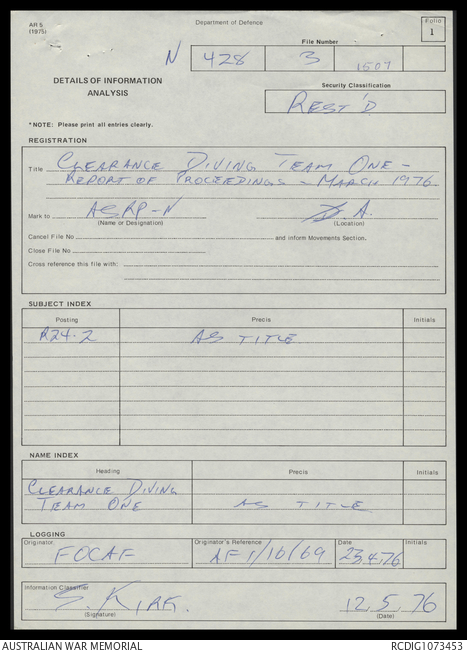 AR 5
(1975)
Department of Defence
Folio
1
File Number
N 428 3 1507
DETAILS OF INFORMATION
ANALYSIS
Security Classification
REST'D
*NOTE: Please print all entries clearly.
REGISTRATION
Title CLEARANCE DIVING TEAM ONE -
REPORT OF PROCEEDINGS - MARCH 1976.
Mark to ASRP-N
(Name or Designation)
(Location)
Cancel File No and inform Movements Section.
Close File No
Cross reference this file with:
SUBJECT INDEX
Posting Precis Initials
R24.2 AS TITLE
NAME INDEX
Heading Precis Initials
CLEARANCE DIVING
TEAM ONE AS TITLE
LOGGING
Originator Originator's Reference Date Initials
FOCAF AF 1/16/69 23.4.76
Information Classifier
S. KIRK. 12.5.76
(Signature) (Date)
AUSTRALIAN WAR MEMORIAL RCDIG1073453